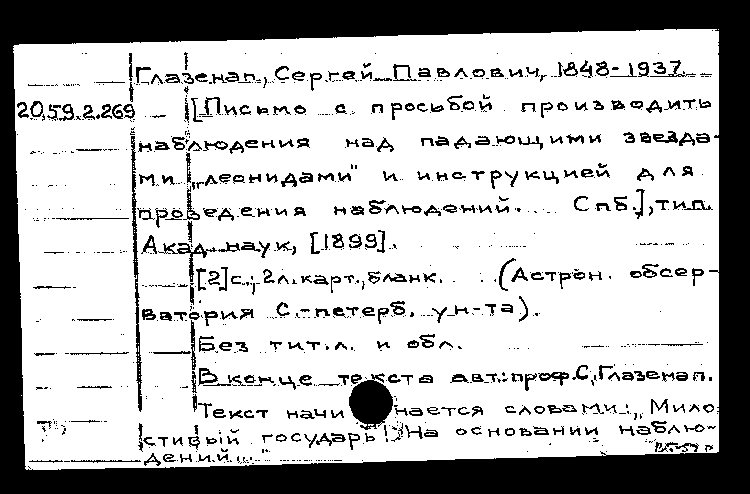 Глазенап, Сергей Павлович, 1848-1937
20.59.2.269 [Письмо с просьбой производить
наблюдения над падающими звезда-
ми „леонидами" и инструкцией для
проведения наблюдений. Спб.], тип.
Акад. наук, [1899].
[2]с.; 2л.карт., бланк. (Астрон. обсер-
ватория С.-петерб. ун-та).
Без тит.л. и обл.
В конце текста авт.: проф. С. Глазенап.
Текст начинается словами: „Мило-
стивый государь! На основании наблю-
дений..."